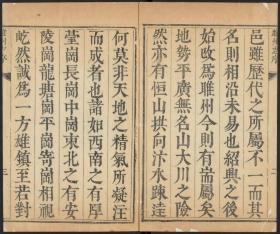 邑雖歷代之所屬不一而其
名則相沿未易也紹興之後
始改爲睢州今則有耑屬矣
地勢平廣無名山大川之險
然亦有恒山拱向汴水踈
何莫非天地之精氣所凝汪
而成者也如西南之有厚
崗長崗中崗東北之有安
陵崗龍塘崗平崗崗相視
屹然誠爲一方雄鎮至若對
三